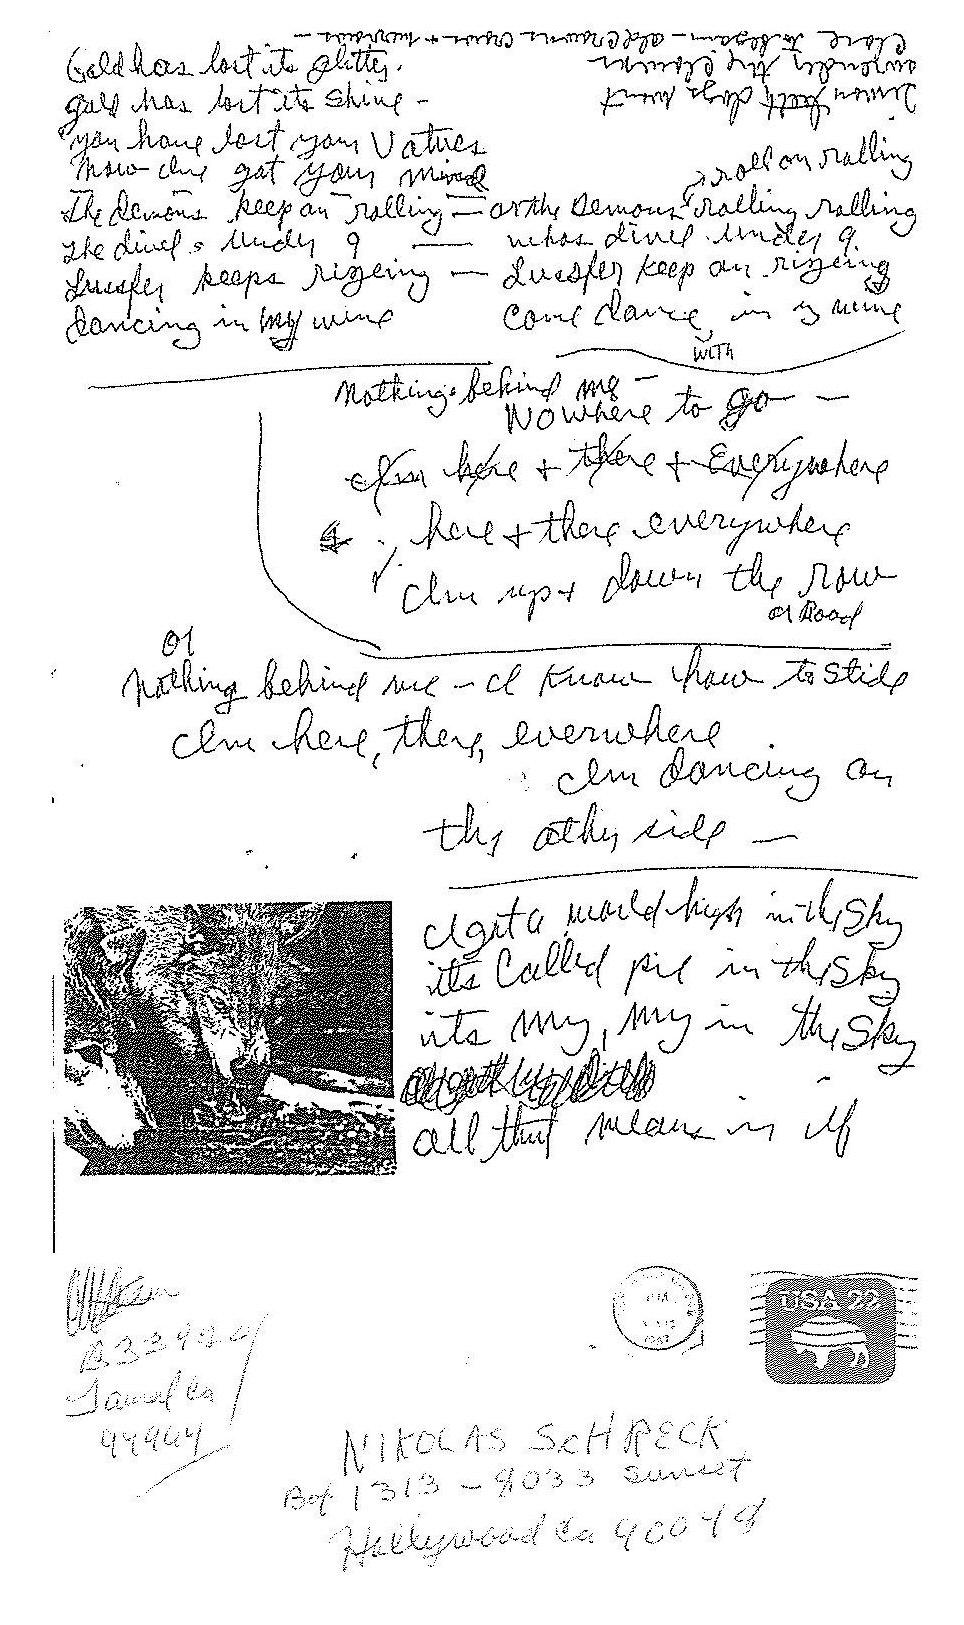 Gold has lost its glitter.
gold has lost its shine -
you have lost your Values
Now Ive got your mind
roll on rolling
The demons keep on rolling — or the Demons rolling rolling
the divel s Under 9 — whos divel Under 9.
Lucsfer keeps rizeing — Lucsfer keep on rizeing
dancing in my wine
Come dance in my wine
with
Nothing behind me —
NOwhere to go —
Im here + there + Everywhere
here + there everywhere
Im up + down the row
or Road
or
Nothing behind me - I know how to Slide
Im here, there, everwhere
Im dancing on
the other side —
I got a world high in the Sky
its Called pie in the Sky
its My, My in the Sky
all that means is
B33920
Tamal Ca
94964
USA 22
NIKOLAS SCHRECK
Box 1313 - 8033 Sunset
Hollywood Ca 90048